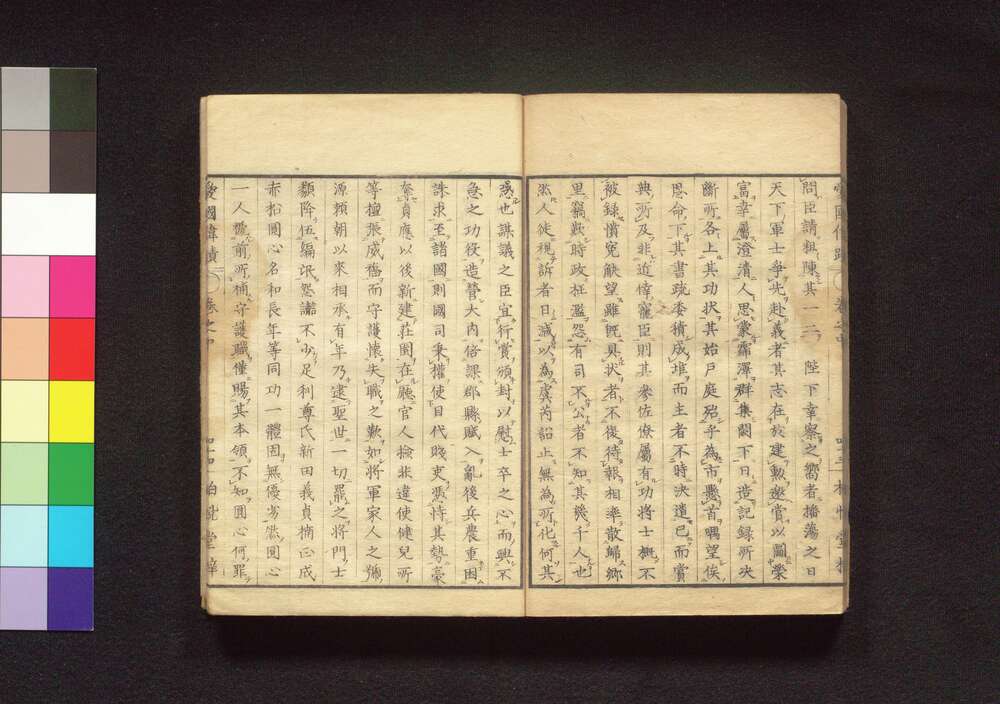 問臣請粗陳其一二陛下幸察之嚮者播蕩之日
天下軍士爭先赴義者其志在於建勲邀賞以圖榮
富幸屬澄清人思蒙霈澤群集闕下日造記録所決
斷所各上其功状其始戸庭殆乎為市懸首喁望俟
恩命下其書疏委積成堆而主者不時決遣已而賞
典所及非近倖寵臣則其參佐僚屬有功將士概不
被録憤冤觖望雖既具状者不復待報相率散歸郷
里竊歎時政枉濫怨有司不公者不知其幾千人也
然人徒視訴者日減以為虞芮詔止無為所化何其
惑也謀議之臣宜行賞頒封以慰士卒之心而興不
急之功役造營大内倍課郡縣賦入亂後兵農重困
誅求至諸國則國司秉權使目代賤吏憑恃其勢豪
奪貞應以後新建莊園在廳官人撿非違使健兒所
等擅張威福而守護懷失職之歎如將軍家人之號
源頼朝以來相承有年乃逮聖世一切罷之將門士
纇降伍編氓怨讟不少足利尊氏新田義貞楠正成
赤松圓心名和長年等同功一體固無優劣然圓心
一人〓前所補守護職僅賜其本領不知圓心何罪
愛國偉蹟
卷之中